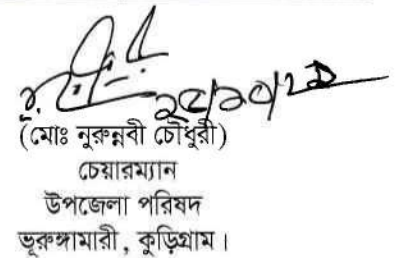 (মোঃ নুরুন্নবী চৌধুরী)
চেয়ারম্যান
উপজেলা পরিষদ
ভূরুঙ্গামারী, কুড়িগ্রাম।